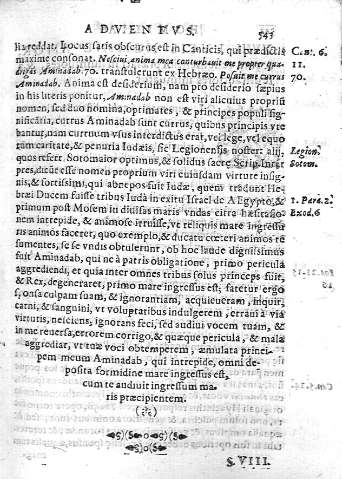 ADVENTVS. 543
lia reddat. Locus satis obscurus est in Canticis, qui prædictis
maxime consonat. Nesciui, anima mea conturbauit me propter qua-
drigas Aminadab. 70. transtulerunt ex Hebræo. Posuit me currus
Aminadab. Anima est desiderium, nam pro desiderio sæpius
in his literis ponitur, Aminadab non est viri alicuius proprium
nomen, sed duo nomina, optimates, & principes populi sig-
nificaria, currus Aminadab sunt currus, quibus principis vte
bantur, nam curruum vsus interdictus erat, vel lege, vel equo
rum caritate, & penuria Iudæis, sic Legionensis noster: alij
quos refert. Sotomaior optimus, & solidus sacræ Scrip. Inter
pres, dicit esse nomen proprium viri cuiusdam virtute insig-
nis, & fortissimi, qui abnepos fuit Iudæ, quem tradunt He-
bræi Ducem fuisse tribus Iuda in exitu Israel de AEgypto, &
primum post Mosem in diuisas maris vndas citra hæsitatio
nem intrepide, & animose irruisse, vt reliquis mare ingressu
ris animos faceret, quo exemplo, & ducatu cœteri animos re
sumentes, se se vndis obtulerunt, ob hoc laude dignissimus
fuit Aminadab, qui ne à patris obligatione, primo pericula
aggrediendi, et quia inter omnes tribus solus princeps fuit,
& Rex, degeneraret, primo mare ingressus est, fateor ergo
culpam suam, & ignorantiam, acquieueram, inquit,
carni, & sanguini, vt voluptatibus indulgerem, errani à via
virtutis, nesciens, ignorans feci, sed audiui vocem tuam, &
in me reuersa, errorem corrigo, & quæque pericula, & mala
aggrediar, vt tuæ voci obtemperem, æmulata princi-
pem meum Aminadab, qui intrepide, omni de-
posita formidine mare ingressus est,
cum te audiuit ingressum ma-
ris præcipientem.
Cant. 6.
11.
70.
Legion.
Sotom.
1. Para. 2.
Exod. 6
S. VIII.